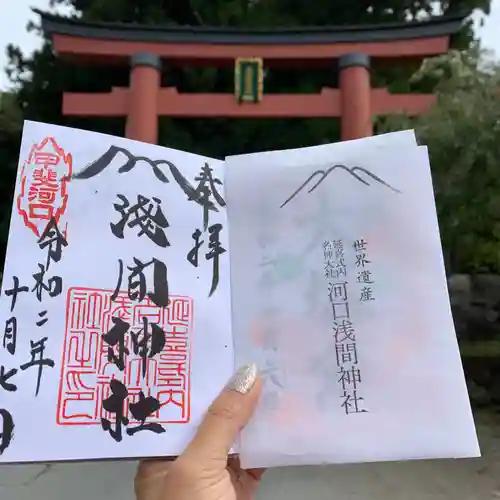 奉拝
浅間神社
甲斐河口
令和二年
十月七日
世界遺産
延喜式内
名神大社
河口浅間神社